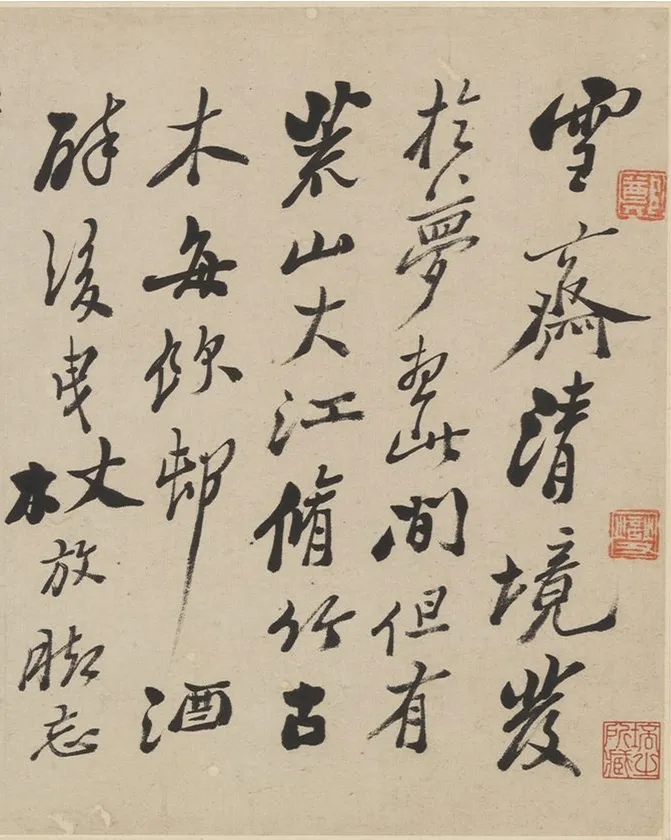 雪齋清境發
於夢想此間但有
荒山大江脩竹古
木每飲邨酒
醉後曳杖放脚忘